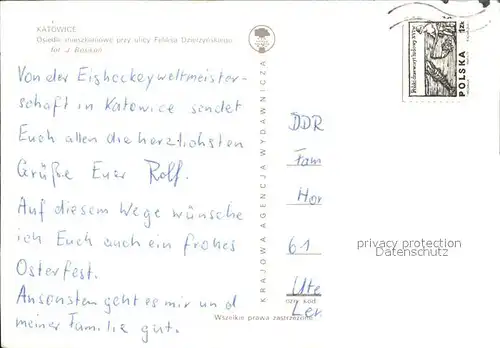 KATOWICE
Osiedle mieszkaniowe przy ulicy Feliksa Dzierżyńskiego
fot. J.
Von der Eishockeyweltmeister-
schaft in Katowice sendet
Euch allen die herzlichsten
Grüße Euer Rolf.
Auf diesem Wege wünsche
ich Euch auch ein frohes
Osterfest.
Ansonsten geht es mir und
meiner Familie gut.
KRAJOWA AGENCJA WYDAWNICZA
Wszelkie prawa zastrzeżone
POLSKA 1zł
DDR
Fam
Hor
61
Ute
kod
privacy protection
Datenschutz